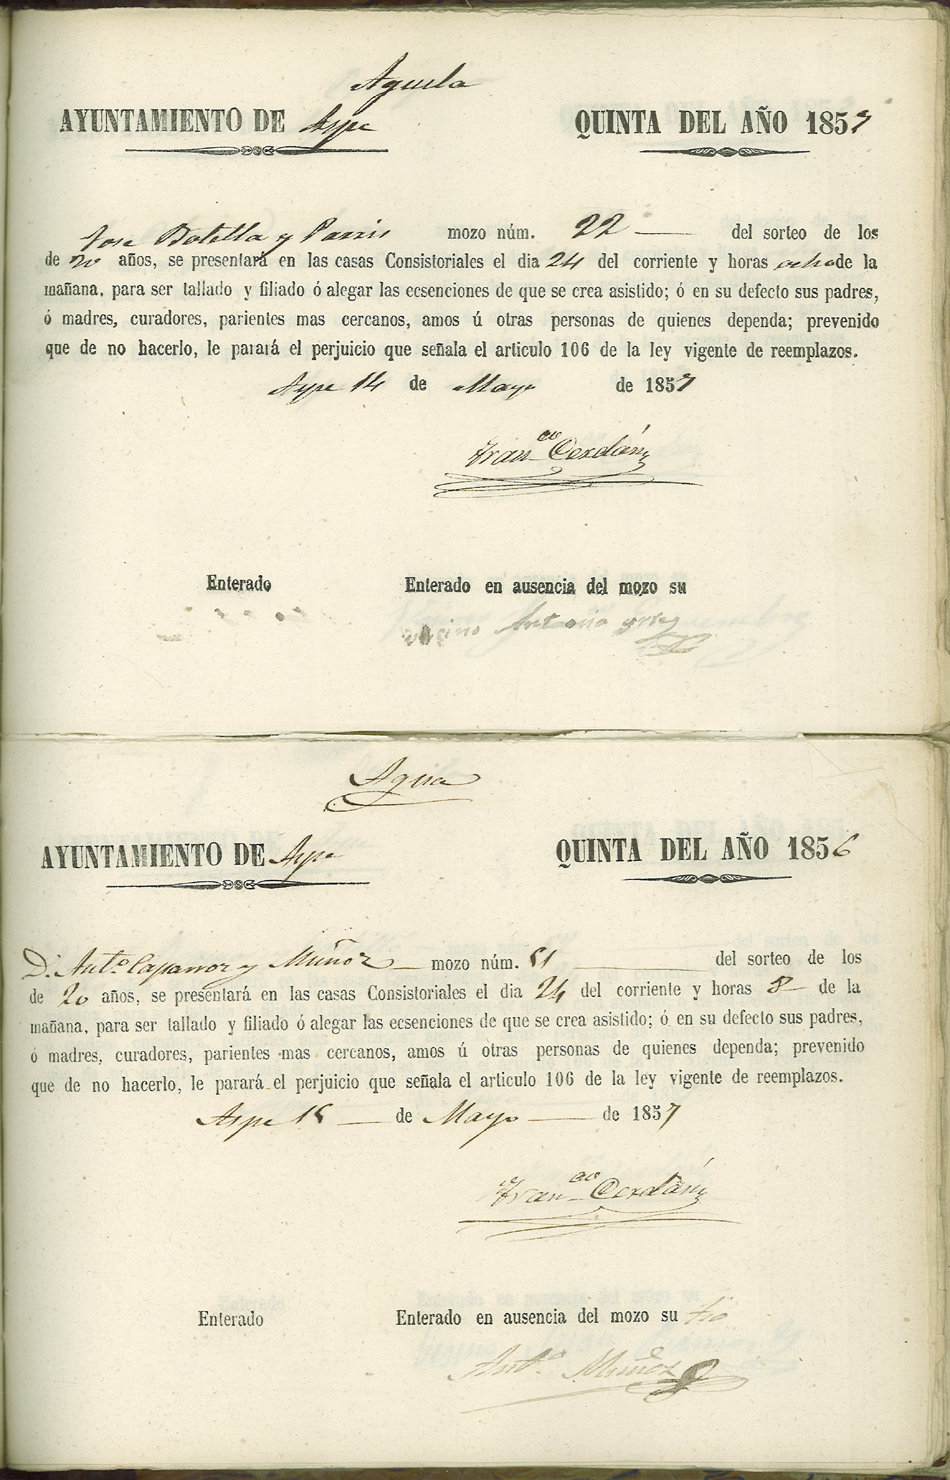 Aguila
AYUNTAMIENTO DE Aspe QUINTA DEL AÑO 1857
Jose Botella y Pavis mozo núm. 22 del sorteo de los
de 20 años, se presentará en las casas Consistoriales el dia 24 del corriente y horas ocho de la
mañana, para ser tallado y filiado ó alegar las ecsenciones de que se crea asistido; ó en su defecto sus padres,
ó madres, curadores, parientes mas cercanos, amos ú otras personas de quienes dependa; prevenido
que de no hacerlo, le parará el perjuicio que señala el articulo 106 de la ley vigente de reemplazos.
Aspe 14 de Mayo de 1857
Fran.co Cerdán
Enterado Enterado en ausencia del mozo su
vecino Antonio
Agua
AYUNTAMIENTO DE Aspe QUINTA DEL AÑO 1856
D. Ant.o Caparros y Muñoz mozo núm. 51 del sorteo de los
de 20 años, se presentará en las casas Consistoriales el dia 24 del corriente y horas 8 de la
mañana, para ser tallado y filiado ó alegar las ecsenciones de que se crea asistido; ó en su defecto sus padres,
ó madres, curadores, parientes mas cercanos, amos ú otras personas de quienes dependa; prevenido
que de no hacerlo, le parará el perjuicio que señala el articulo 106 de la ley vigente de reemplazos.
Aspe 15 de Mayo de 1857
Fran.co Cerdán
Enterado Enterado en ausencia del mozo su tio
Ant.o Muñoz